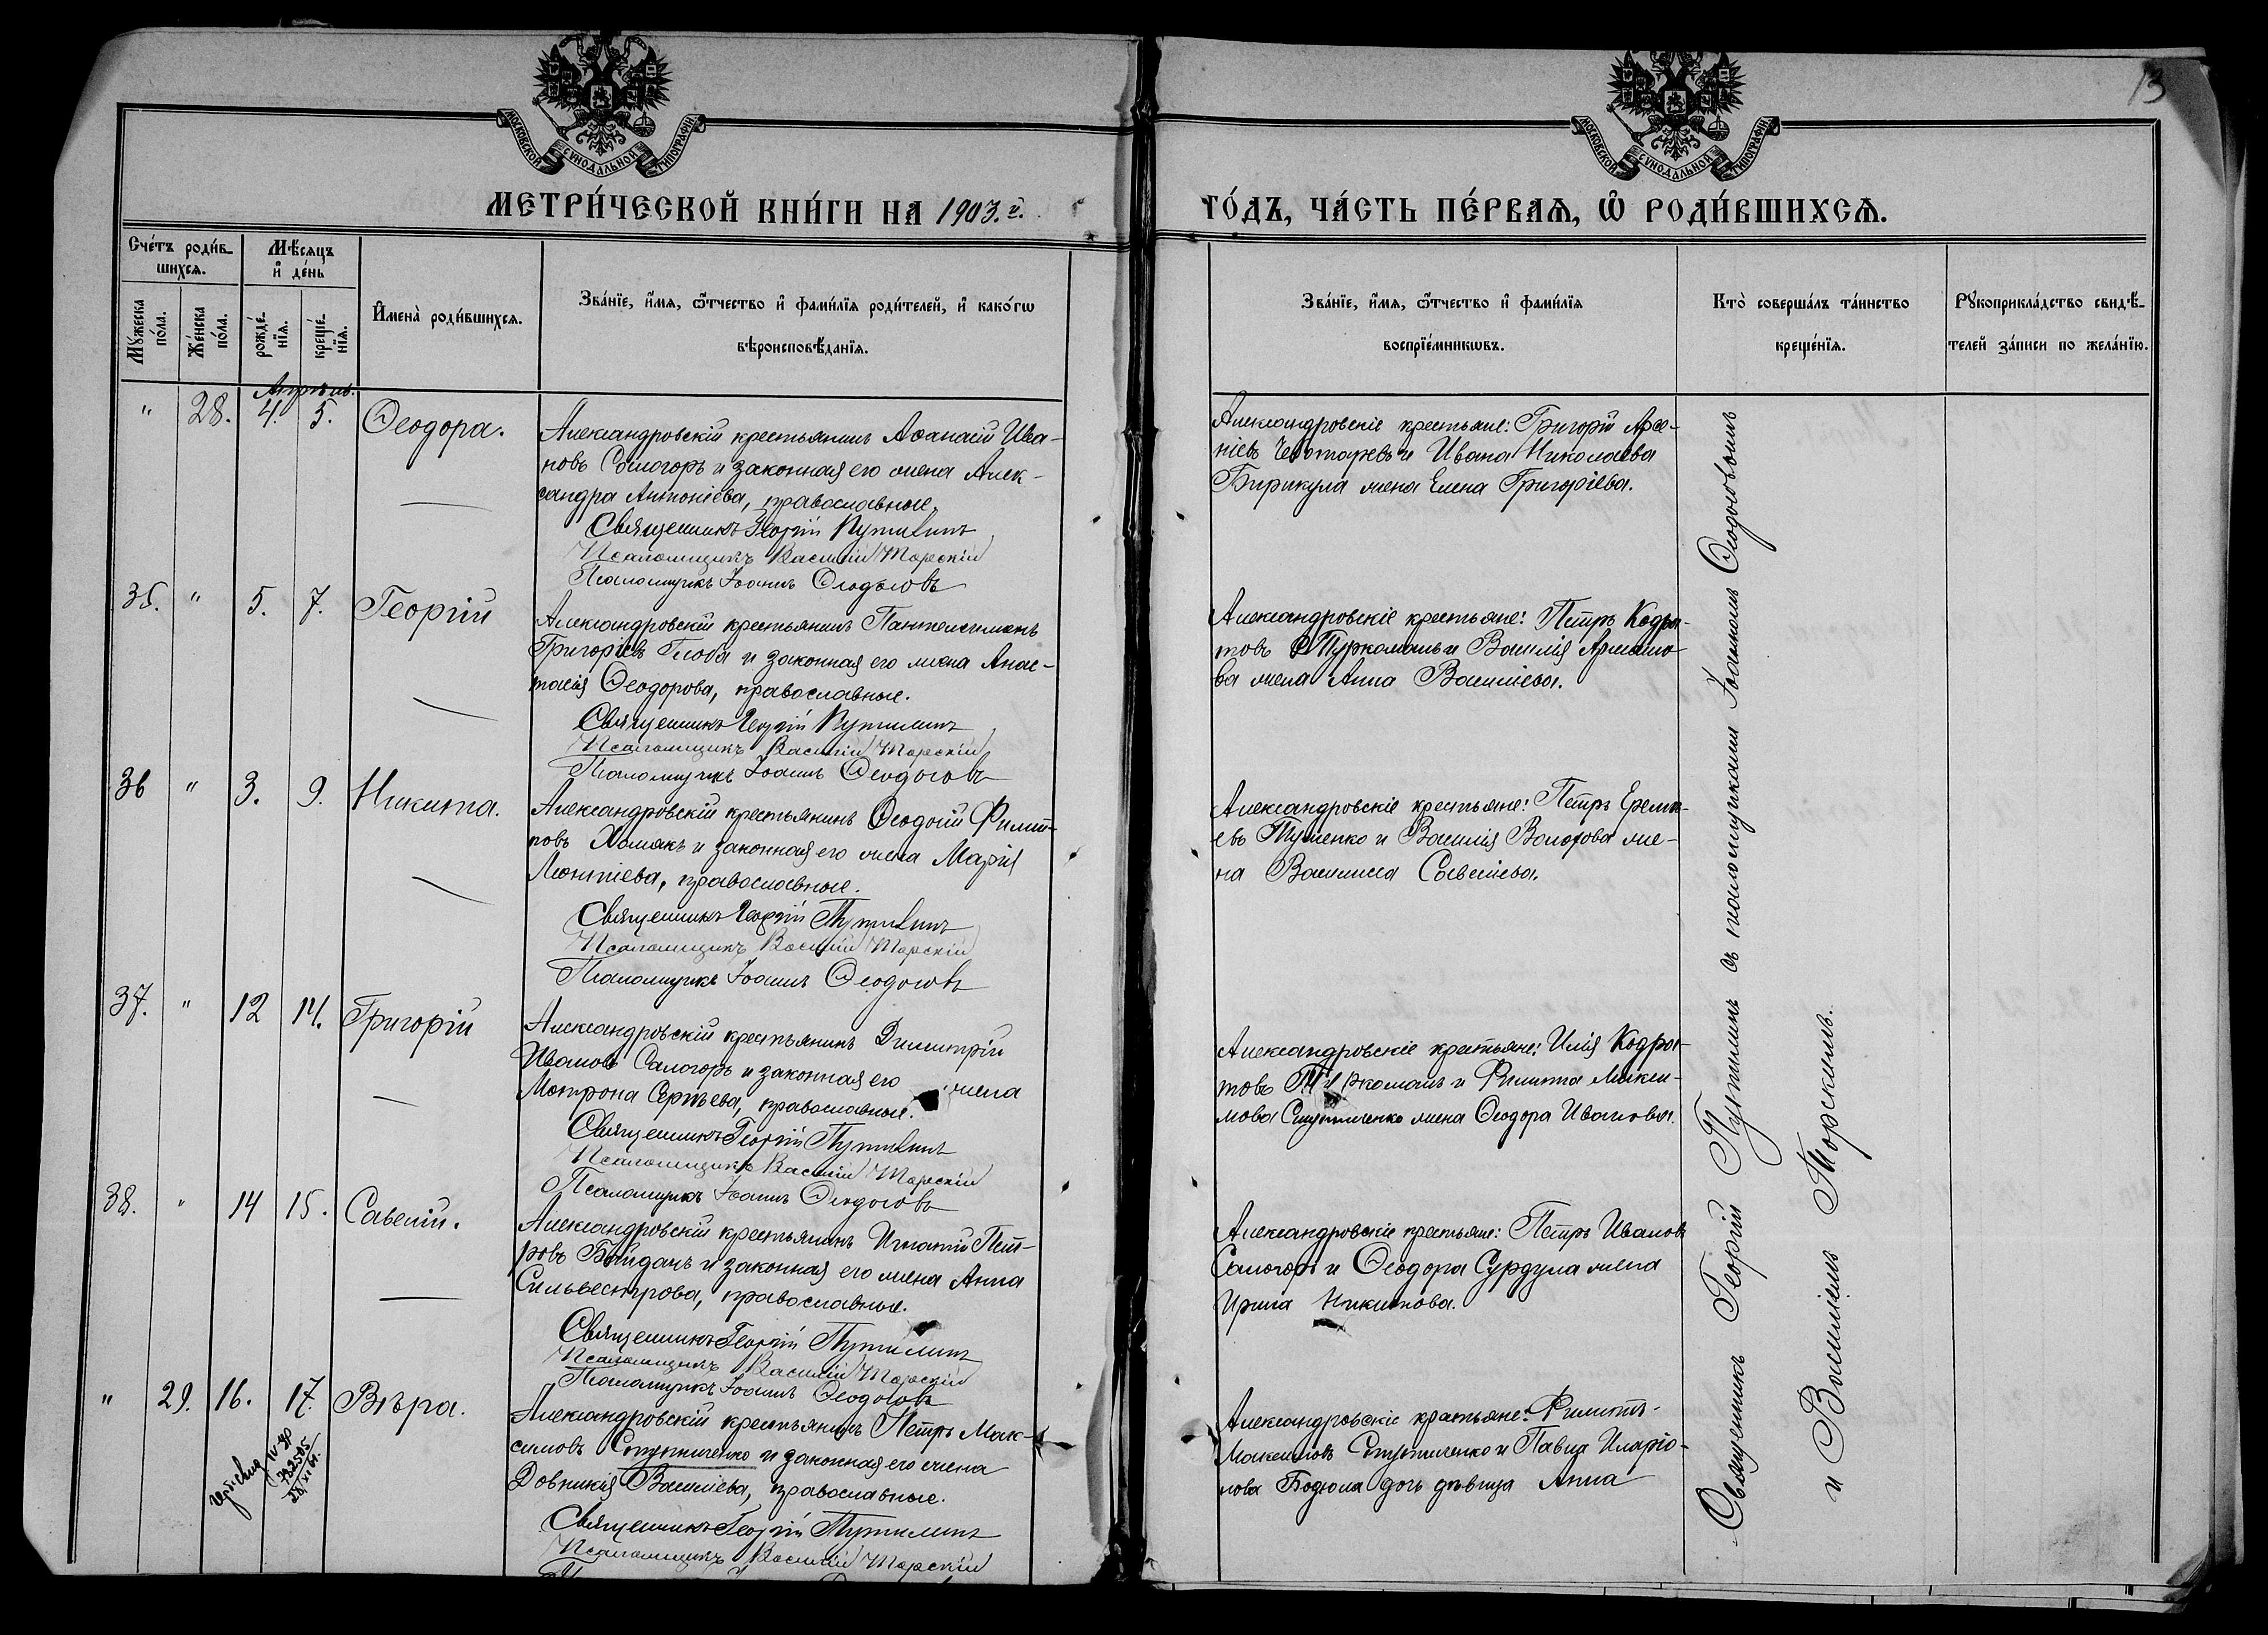 13
МОСКОВСКОЙ СѴНОДАЛЬНОЙ ТИПОГРАФІИ
МОСКОВСКОЙ СѴНОДАЛЬНОЙ ТИПОГРАФІИ
МЕТРИ́ЧЕСКОЙ КНИ́ГИ НА 1903.й.
ГО́ДЪ, ЧА́СТЬ ПЕ́РВАѦ, Ѡ РОДИ́ВШИХСѦ.
Сче́тъ роди́в-
шихсѧ.
Мꙋ́жеска по́ла.
Же́нска по́ла.
Мѣ́сѧцъ
и҆ де́нь
рожде́-
нїѧ.
креще́-
нїѧ.
И҆мена̀ роди́вшихсѧ.
Зва́нїе, и҆́мѧ, ѻ҆́тчество и҆ фами́лїѧ роди́телей, и҆ како́гѡ
вѣроисповѣ́данїѧ.
Зва́нїе, и҆́мѧ, ѻ҆́тчество и҆ фами́лїѧ
воспрїе́мникѡвъ.
Кто̀ соверша́лъ та́инство
креще́нїѧ.
Рꙋкоприкла́дство свидѣ́-
телей за́писи по жела́нїю.
Апрѣль.
" 28. 4. 5. Ѳеодора.
Александровскій крестьянинъ Аѳанасій Ива-
новъ Самогоръ и законная его жена Алек-
сандра Антоніева, православные.
Священникъ Георгій Путилинъ
Псаломщикъ Василій Торскій
Псаломщикъ Іоаннъ Ѳеодосовъ
Александровскіе крестьяне: Григорій Арсе-
ніевъ Чеботаревъ и Ивана Николаева
Бирикула жена Елена Григоріева.
35. " 5. 7. Георгій
Александровскій крестьянинъ Пантелеимонъ
Григоріевъ Глоба и законная его жена Анас-
тасія Ѳеодорова, православные.
Священникъ Георгій Путилинъ
Псаломщикъ Василій Торскій
Псаломщикъ Іоаннъ Ѳеодосовъ
Александровскіе крестьяне: Петръ Кодра-
товъ Туркоманъ и Василія
ва жена Анна Василіева.
36 " 3. 9. Никита.
Александровскій крестьянинъ Ѳеодосій Филип-
повъ Хомякъ и законная его жена Марія
Леонтіева, православные.
Священникъ Георгій Путилинъ
Псаломщикъ Василій Торскій
Псаломщикъ Іоаннъ Ѳеодосовъ
Александровскіе крестьяне: Петръ Ереми-
евъ и Василія Волохова же-
на Василиса Савеліева.
37. " 12 14. Григорій
Александровскій крестьянинъ Димитрій
Ивановъ Самогоръ и законная его жена
Мотрона Сергѣева, православные.
Священникъ Георгій Путилинъ
Псаломщикъ Василій Торскій
Псаломщикъ Іоаннъ Ѳеодосовъ
Александровскіе крестьяне: Илія Кодра-
товъ Туркоманъ и Филиппа Макси-
мова Ступниченко жена Ѳеодора Иванова.
38. " 14 15. Савелій.
Александровскій крестьянинъ Игнатій Пет-
ровъ Байданъ и законная его жена Анна
Сильвестрова, православные.
Священникъ Георгій Путилинъ
Псаломщикъ Василій Торскій
Псаломщикъ Іоаннъ Ѳеодосовъ
Александровскіе крестьяне: Петръ Ивановъ
Самогоръ и Ѳеодора Сурдула жена
Ирина Никитова.
" 29. 16. 17. Вѣра.
Александровскій крестьянинъ Петръ Мак-
симовъ Ступниченко и законная его жена
Довникія Василіева, православные.
Священникъ Георгій Путилинъ
Псаломщикъ Василій Торскій
Александровскіе крестьяне: Филиппъ
Максимовъ Ступниченко и Павла Иларіо-
нова Бодюла дочь дѣвица Анна
Священникъ Георгій Путилинъ съ псаломщиками Іоанномъ Ѳеодосовымъ
и Василіемъ Торскимъ.